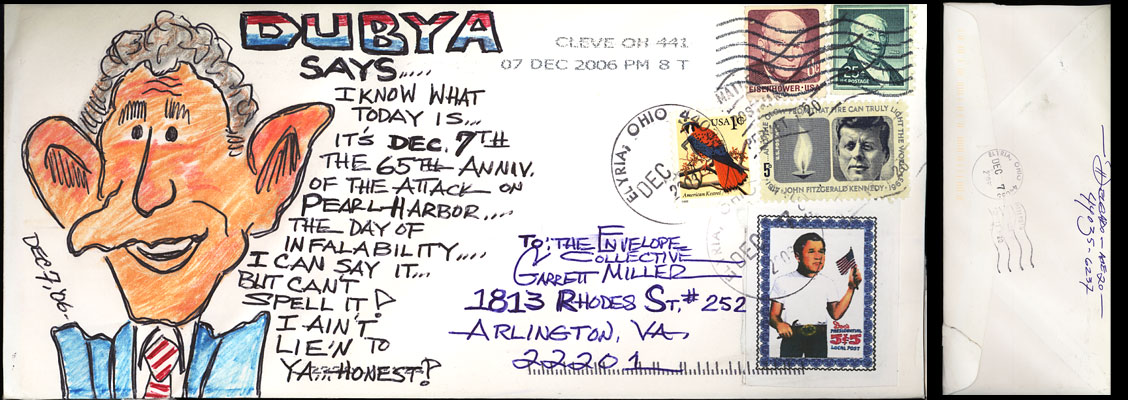 DUBYA
SAYS....
I KNOW WHAT
TODAY IS...
IT'S DEC. 7TH
THE 65TH ANNIV.
OF THE ATTACK ON
PEARL HARBOR....
THE DAY OF
INFALABILITY....
I CAN SAY IT...
BUT CAN'T
SPELL IT!
I AIN'T
LIE'N TO
YA...HONEST!
DEC 7, '06-
CLEVE OH 441
07 DEC 2006 PM 8 T
EISENHOWER·USA
25¢
U.S. POSTAGE
ELYRIA, OHIO
DEC
USA 1¢
American Kestrel
...AND THE GLOW FROM THAT FIRE CAN TRULY LIGHT THE WORLD
5¢
JOHN FITZGERALD KENNEDY
TO: THE ENVELOPE
COLLECTIVE
GARRETT MILLER
1813 RHODES ST. # 252
ARLINGTON, VA.
22201
PRESIDENTIAL
LOCAL POST
ELYRIA, OHIO
DEC 7
44035-6237